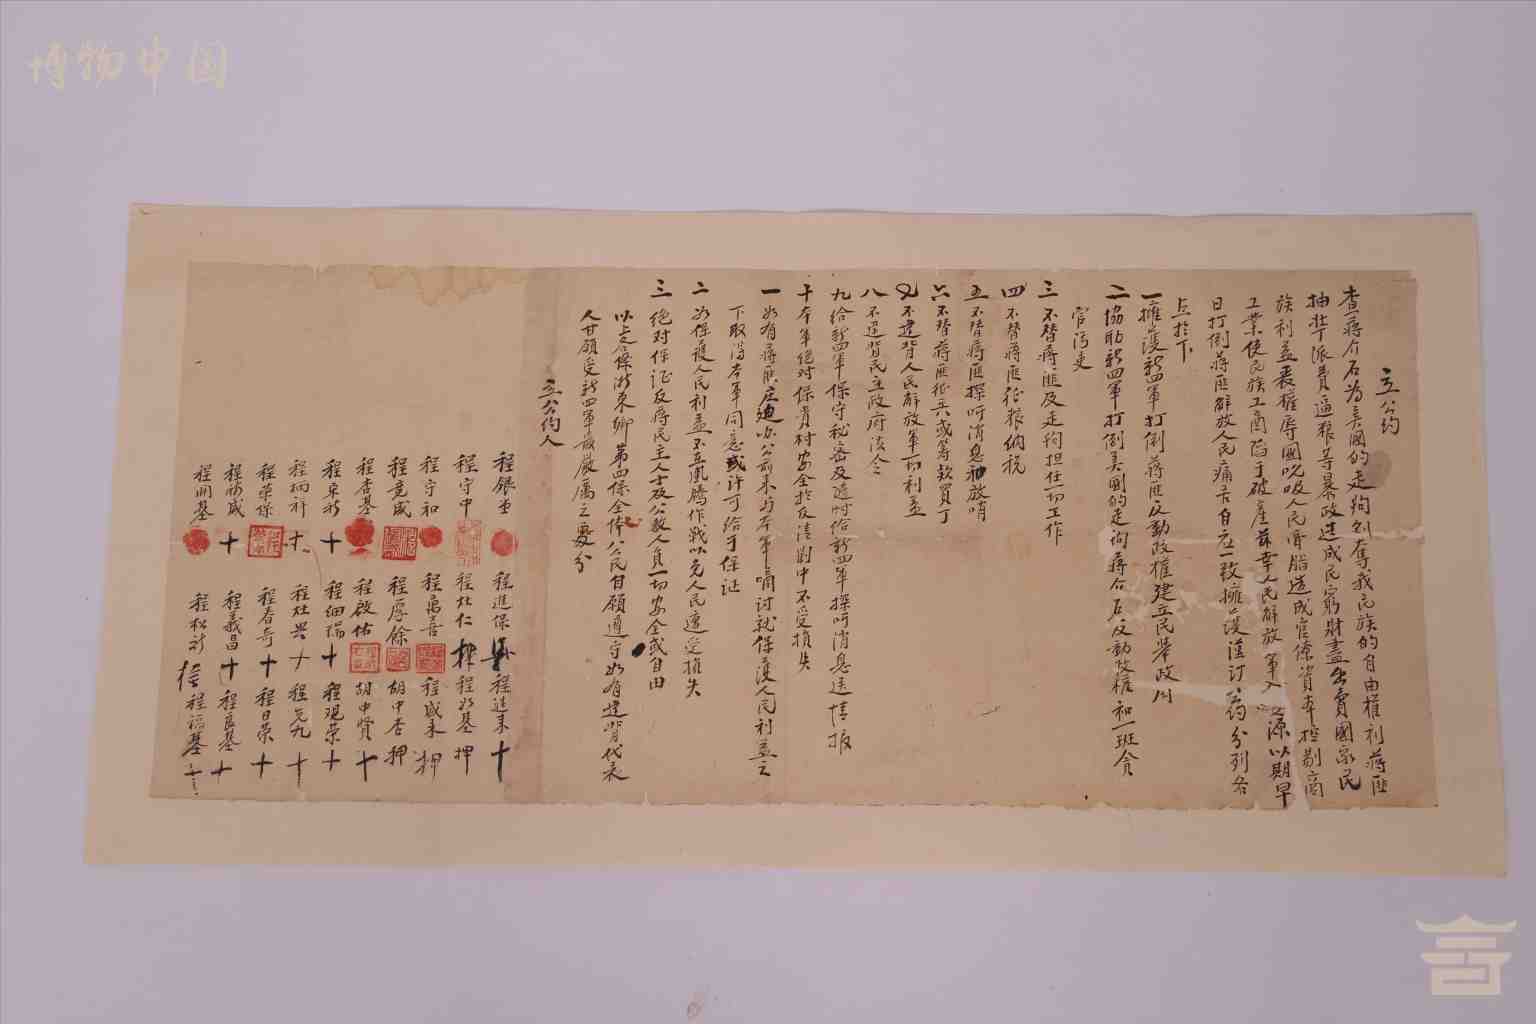 博物中国
立公约
查蔣介石为美國的走狗剝奪我民族的自由權利蔣匪
抽壯丁派费逼粮等暴政造成民窮財盡出賣國家民
族利益丧權辱國吮吸人民膏脂造成官僚資本控制商
工業使民族工商陷于破產茲幸人民解放軍入 源以期早
日打倒蔣匪解放人民痛苦自应一致擁護謹订公约分列各
点於下
一擁護新四軍打倒蔣匪反動政權建立民举政府
二協助新四軍打倒美國的走狗蔣介石反動政權和一班貪
官污吏
三不替蔣匪及走狗担任一切工作
四不替蔣匪征粮纳税
五不替蔣匪探听消息和放哨
六不替蔣匪征兵或筹款買丁
又不違背人民解放軍一切利益
八不違背民主政府法令
九给新四軍保守秘密及随时给新四軍探听消息送情报
十本軍绝对保貴村安全於反清剿中不受損失
一如有蔣匪庄迪 公前来与本軍嘀讨就保護人民利益之
下取得本軍同意或许可给于保证
二为保護人民利益不在凰腾作戰以免人民遭受損失
三绝对保证反蔣民主人士及公教人員一切安全或自由
以上各條浙東鄉第四保全体公民甘願遵守如有違背代表
人甘願受新四軍最嚴厲之處分
立公约人
程銀 程進保 程進来 十
程守中 程灶仁 押 程如基 押
程守和 程萬喜 程盛来 押
程竟成 程厚餘 胡中杏 押
程杏基 程啟佑 胡中賢 十
程宋 十 程细瑞 十 程观荣 十
程炳 十 程灶兴 十 程先九 十
程荣保 程春奇 十 程日荣 十
程 成 十 程義昌 十 程良基 十
程明基 程松 程福基 十